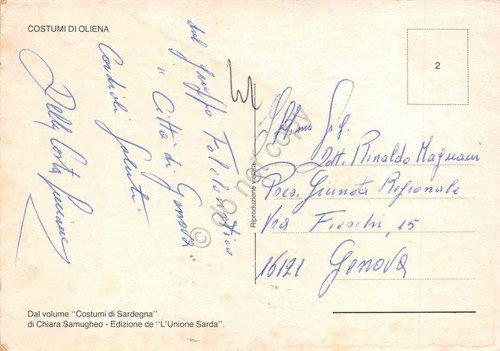 COSTUMI DI OLIENA
dal gruppo Folcloristico
"Città di Genova"
Cordiali Saluti
Della Costa
2
Ill.mo Sig.
Dott. Rinaldo Magnani
Pres. Giunta Regionale
Via Fieschi, 15
16121 Genova
Riproduzione
do not copy
Dal volume "Costumi di Sardegna"
di Chiara Samugheo - Edizione de "L'Unione Sarda".